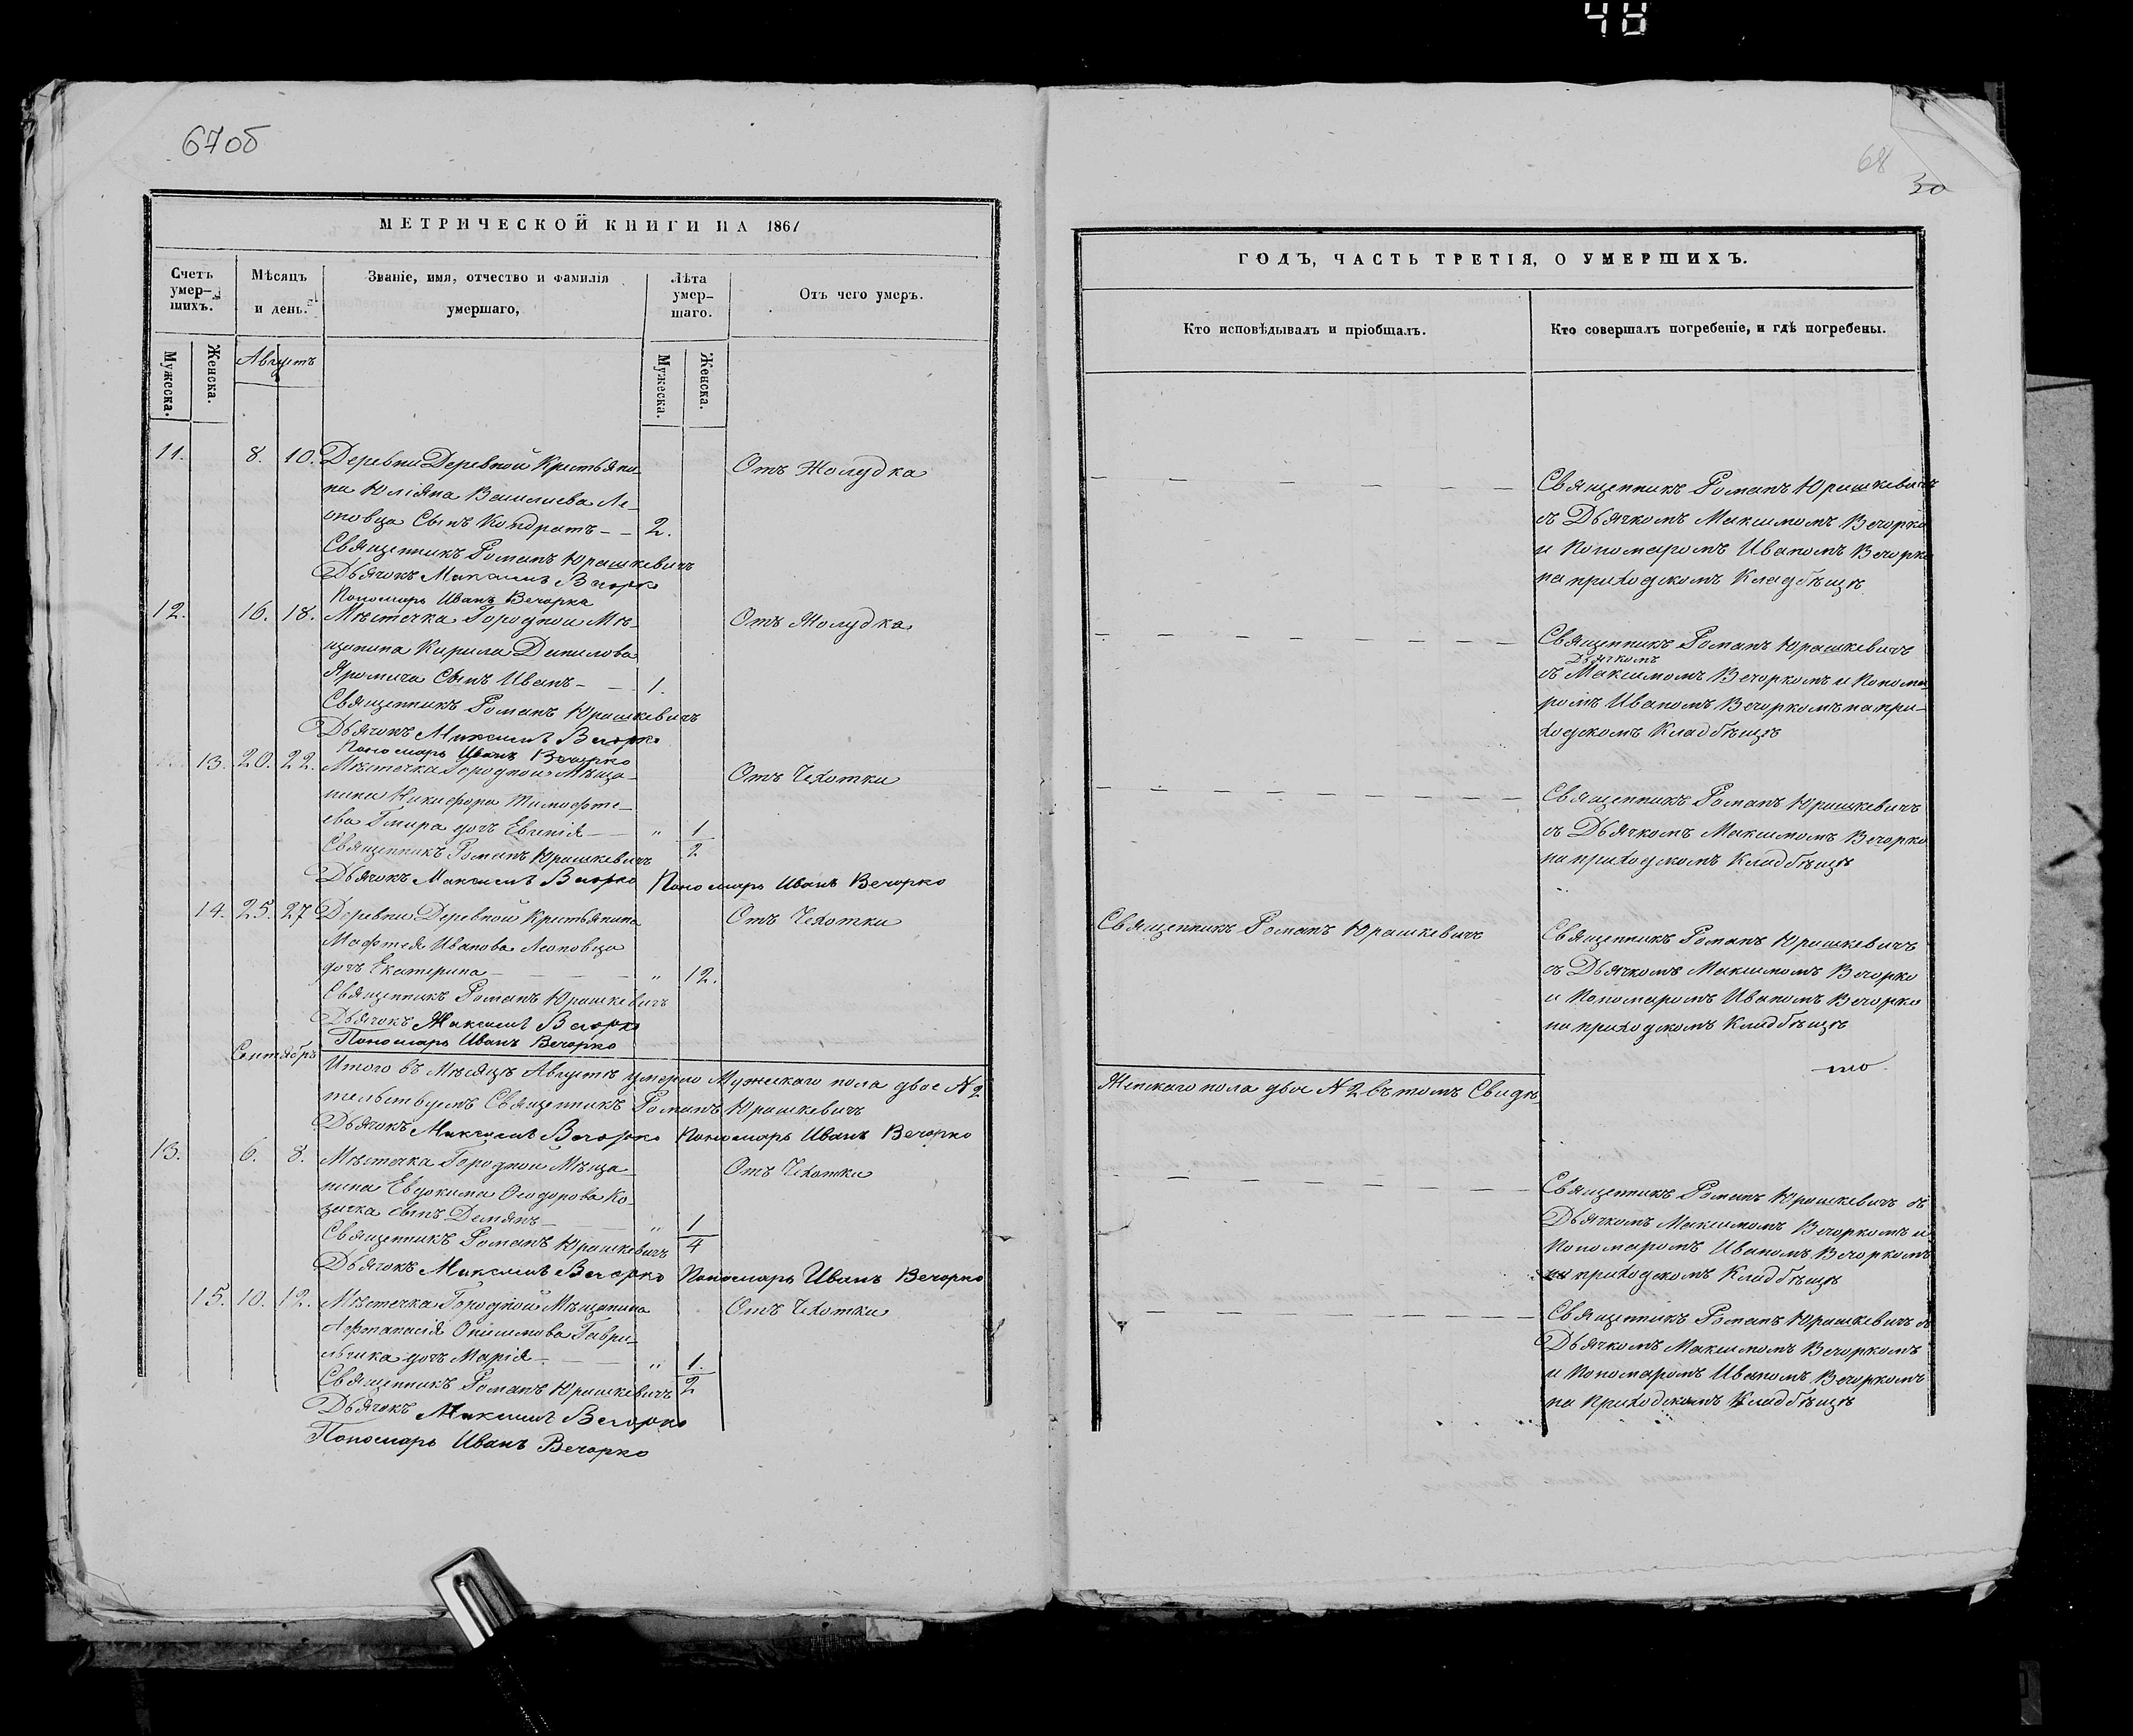 48
67об
68
30
МЕТРИЧЕСКОЙ КНИГИ НА 1867
Счетъ умер-шихъ.
Мѣсяцъ и день.
Званіе, имя, отчество и фамилія умершаго,
Лѣта умер-шаго.
Отъ чего умеръ.
Мужеска.
Женска.
Августъ
Мужеска.
Женска.
11. 8. 10. Деревни Деревной Крестьяни-
на Юліяна Василиева Ле-
оновца Сынъ Кондратъ - - 2.
Отъ Жолудка
Священникъ Романъ Юрашкевичъ
Дьячокъ Максимъ Вечорко
Пономарь Иванъ Вечорко
12. 16. 18. Мѣстечка Городной Мѣ-
щанина Кирила Данилова
Яромича Сынъ Иванъ - - 1.
Отъ Жолудка
Священникъ Романъ Юрашкевичъ
Дьячокъ Максимъ Вечорко
Пономарь Иванъ Вечорко
13. 20. 22. Мѣстечка Городной Мѣща-
нина Никифора Тимофте-
ева Гмира дочъ Евгенія - " 1/2
Отъ Чехотки
Священникъ Романъ Юрашкевичъ
Дьячокъ Максимъ Вечорко Пономарь Иванъ Вечорко
14. 25. 27 Деревни Деревной Крестьянина
Мафтея Иванова Леоновца
дочъ Екатерина - - - " 12.
Отъ Чехотки
Священникъ Романъ Юрашкевичъ
Дьячокъ Максимъ Вечорко
Пономарь Иванъ Вечорко
Сентябрь
Итого въ Мѣсяцѣ Августѣ умерло Мужескаго пола двое N 2
тельствуемъ Священникъ Романъ Юрашкевичъ
Дьячокъ Максимъ Вечорко Пономарь Иванъ Вечорко
13. 6. 8. Мѣстечка Городной Мѣща-
нина Евдокима Ѳеодорова Ко-
зичка сынъ Демянъ - - " 1/4
Отъ Чехотки
Священникъ Романъ Юрашкевичъ
Дьячокъ Максимъ Вечорко Пономарь Иванъ Вечорко
15. 10. 12. Мѣстечка Городной Мѣщанина
Афтанасія Онисимова Гаври-
льчика дочъ Марія - - " 1/2
Отъ Чехотки
Священникъ Романъ Юрашкевичъ
Дьячокъ Максимъ Вечорко
Пономарь Иванъ Вечорко
ГОДЪ, ЧАСТЬ ТРЕТІЯ, О УМЕРШИХЪ.
Кто исповѣдывалъ и пріобщалъ.
Кто совершалъ погребеніе, и гдѣ погребены.
Священникъ Романъ Юрашкевичъ
съ Дьячкомъ Максимомъ Вечорко
и Пономаромъ Иваномъ Вечорко
на приходскомъ Кладбѣщѣ
Священникъ Романъ Юрашкевичъ
Дьячкомъ
съ Максимомъ Вечоркомъ и Понома-
ромъ Иваномъ Вечоркомъ на при-
ходскомъ Кладбѣщѣ
Священникъ Романъ Юрашкевичъ
съ Дьячкомъ Максимомъ Вечорко
на приходскомъ Кладбѣщѣ
Священникъ Романъ Юрашкевичъ
Священникъ Романъ Юрашкевичъ
съ Дьячкомъ Максимомъ Вечорко
и Пономаромъ Иваномъ Вечорко
на приходскомъ Кладбѣщѣ
Женскаго пола двое N 2 въ томъ Свидѣ-
Священникъ Романъ Юрашкевичъ съ
Дьячкомъ Максимомъ Вечоркомъ и
Пономаромъ Иваномъ Вечоркомъ
на приходскомъ Кладбѣщѣ
Священникъ Романъ Юрашкевичъ съ
Дьячкомъ Максимомъ Вечоркомъ
и Пономаромъ Иваномъ Вечоркомъ
на Приходскомъ Кладбѣщѣ